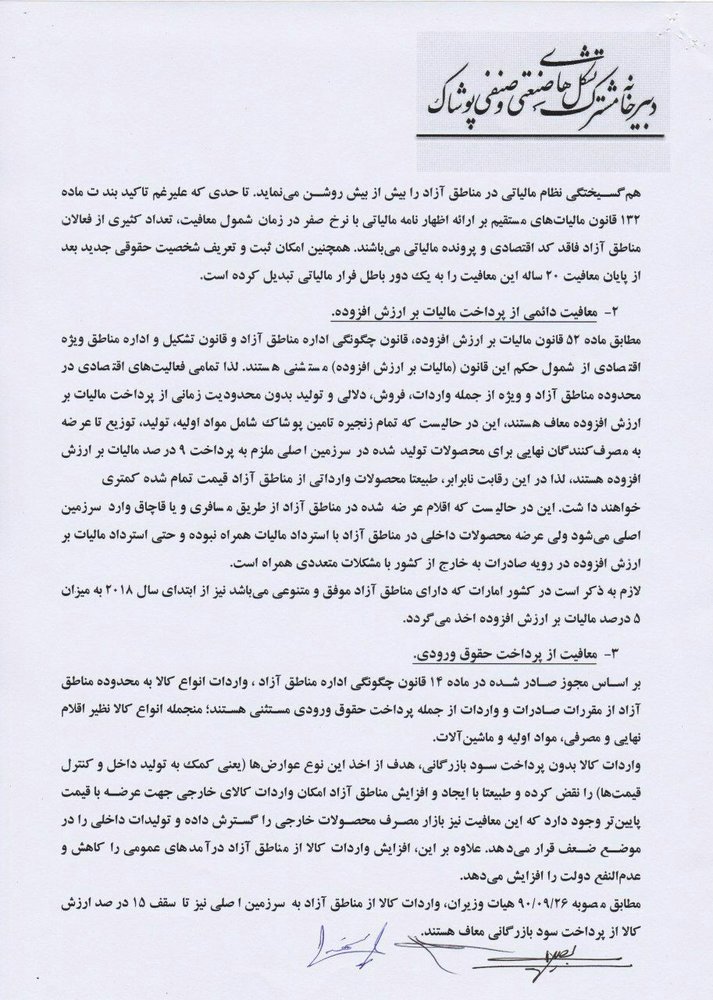 دبیرخانه مشترک تشکل‌های صنعتی و صنفی پوشاک
هم‌گسیختگی نظام مالیاتی در مناطق آزاد را بیش از بیش روشن می‌نماید. تا حدی که علیرغم تاکید بند ت ماده
۱۳۲ قانون مالیات‌های مستقیم بر ارائه اظهار نامه مالیاتی با نرخ صفر در زمان شمول معافیت، تعداد کثیری از فعالان
مناطق آزاد فاقد کد اقتصادی و پرونده مالیاتی می‌باشند. همچنین امکان ثبت و تعریف شخصیت حقوقی جدید بعد
از پایان معافیت ۲۰ ساله این معافیت را به یک دور باطل فرار مالیاتی تبدیل کرده است.
۲- معافیت دائمی از پرداخت مالیات بر ارزش افزوده.
مطابق ماده ۵۲ قانون مالیات بر ارزش افزوده، قانون چگونگی اداره مناطق آزاد و قانون تشکیل و اداره مناطق ویژه
اقتصادی از شمول حکم این قانون (مالیات بر ارزش افزوده) مستثنی هستند. لذا تمامی فعالیت‌های اقتصادی در
محدوده مناطق آزاد و ویژه از جمله واردات، فروش، دلالی و تولید بدون محدودیت زمانی از پرداخت مالیات بر
ارزش افزوده معاف هستند، این در حالیست که تمام زنجیره تامین پوشاک شامل مواد اولیه، تولید، توزیع تا عرضه
به مصرف‌کنندگان نهایی برای محصولات تولید شده در سرزمین اصلی ملزم به پرداخت ۹ درصد مالیات بر ارزش
افزوده هستند، لذا در این رقابت نابرابر، طبیعتا محصولات وارداتی از مناطق آزاد قیمت تمام شده کمتری
خواهند داشت. این در حالیست که اقلام عرضه شده در مناطق آزاد از طریق مسافری و یا قاچاق وارد سرزمین
اصلی می‌شود ولی عرضه محصولات داخلی در مناطق آزاد با استرداد مالیات همراه نبوده و حتی استرداد مالیات بر
ارزش افزوده در رویه صادرات به خارج از کشور با مشکلات متعددی همراه است.
لازم به ذکر است در کشور امارات که دارای مناطق آزاد موفق و متنوعی می‌باشد نیز از ابتدای سال ۲۰۱۸ به میزان
۵ درصد مالیات بر ارزش افزوده اخذ می‌گردد.
۳- معافیت از پرداخت حقوق ورودی.
بر اساس مجوز صادر شده در ماده ۱۴ قانون چگونگی اداره مناطق آزاد ، واردات انواع کالا به محدوده مناطق
آزاد از مقررات صادرات و واردات از جمله پرداخت حقوق ورودی مستثنی هستند؛ منجمله انواع کالا نظیر اقلام
نهایی و مصرفی، مواد اولیه و ماشین‌آلات.
واردات کالا بدون پرداخت سود بازرگانی، هدف از اخذ این نوع عوارض‌ها (یعنی کمک به تولید داخل و کنترل
قیمت‌ها) را نقض کرده و طبیعتا با ایجاد و افزایش مناطق آزاد امکان واردات کالای خارجی جهت عرضه با قیمت
پایین‌تر وجود دارد که این معافیت نیز بازار مصرف محصولات خارجی را گسترش داده و تولیدات داخلی را در
موضع ضعف قرار می‌دهد. علاوه بر این، افزایش واردات کالا از مناطق آزاد درآمدهای عمومی را کاهش و
عدم‌النفع دولت را افزایش می‌دهد.
مطابق مصوبه ۹۰/۰۹/۲۶ هیات وزیران، واردات کالا از مناطق آزاد به سرزمین اصلی نیز تا سقف ۱۵ در صد ارزش
کالا از پرداخت سود بازرگانی معاف هستند.